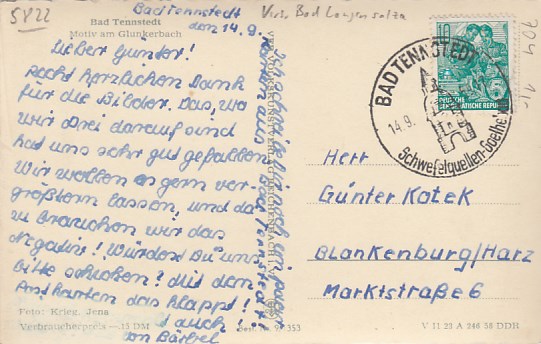 5822
Bad Tennstedt
Motiv am Glunkerbach
Badtennstedt
den 14.9.
Lieber Günter!
Recht herzlichen Dank
für die Bilder. Das, wo
wir Drei darauf sind
hat uns sehr gut gefallen.
Wir wollen es gern ver-
größern lassen, und da-
zu brauchen wir das
Negativ! Würdest Du uns
bitte schicken? Mit den
Ansichtskarten das klappt!
auch!
von Bärbel
Foto: Krieg, Jena
Verbraucherpreis —.15 DM
VEB VOLKSKUNSTVERLAG REICHENBACH I. V.
Karten aus Bad Tennstedt!
Krs. Bad Langensalza
704
10
DEUTSCHE
DEMOKRATISCHE REPUBLIK
5
BAD TENNSTEDT
14.9.
Schwefelquellen-Goethe
Herr
Günter Kotek
Blankenburg/Harz
Marktstraße 6
V 11 23 A 246 58 DDR